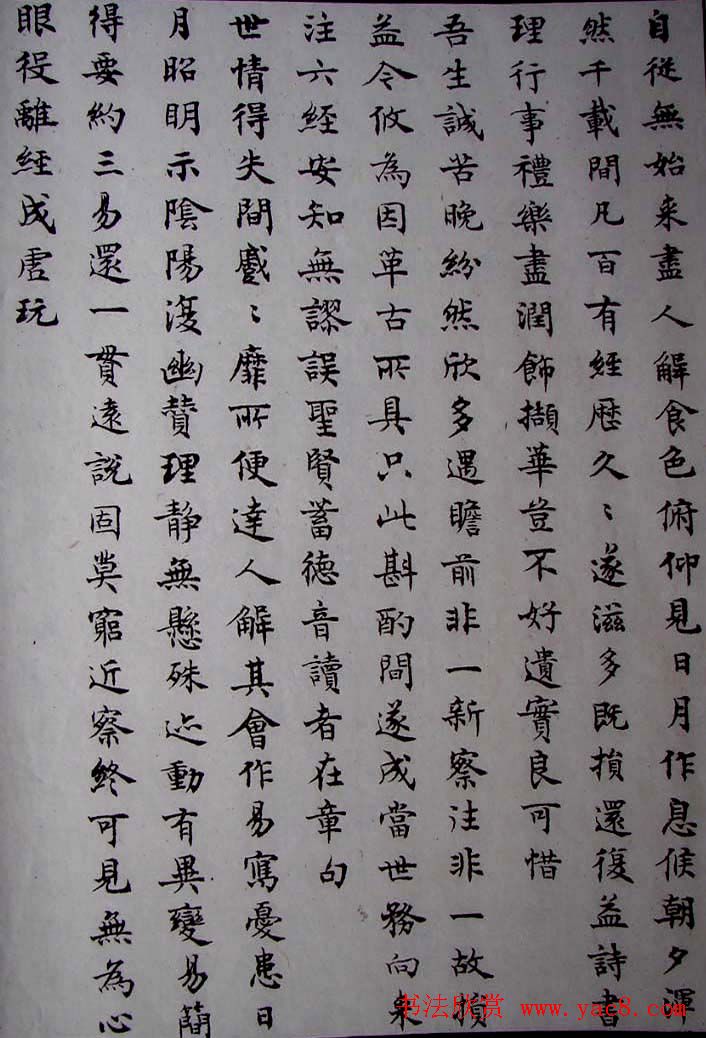 自從無始来盡人解食色俯仰見日月作息候朝夕渾
然千載間凡百有經歷久〻遂滋多既損還復益詩書
理行事禮樂盡潤飾擷華豈不好遺實良可惜
吾生誠苦晚紛然欣多遇瞻前非一新察注非一故損
益令攸為因革古所具只此斟酌間遂成當世務向来
注六經安知無謬誤聖賢蓄德音讀者在章句
世情得失間戲〻靡所便達人解其會作易寫憂患日
月昭明示陰陽復幽贊理靜無懸殊迹動有異變易簡
得要約三易還一貫遠說固莫窮近察終可見無為心
眼役離經成虛玩
书法欣赏 www.yac8.com